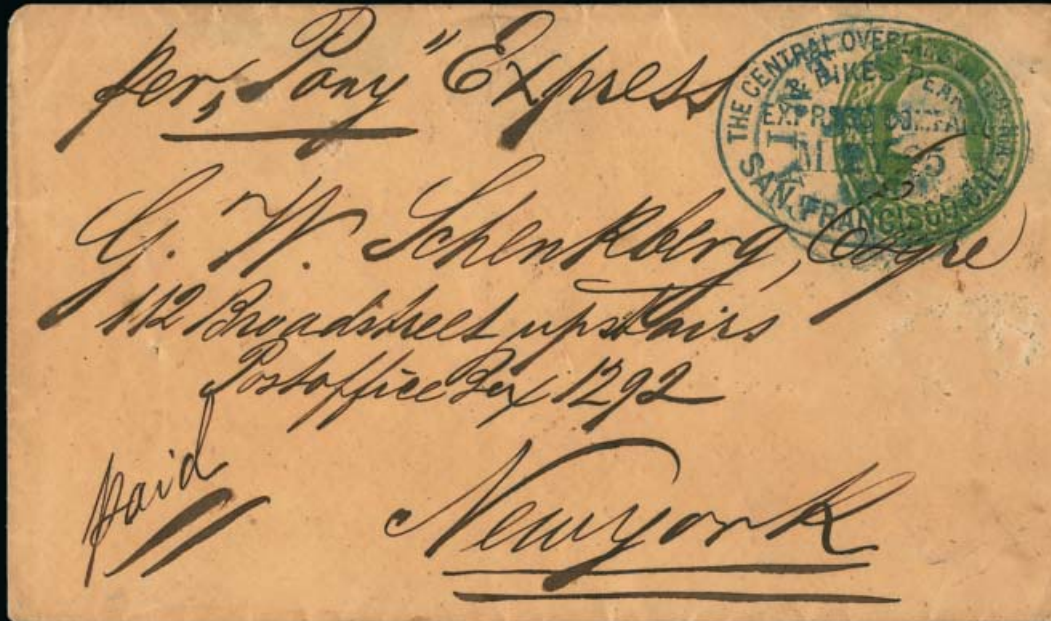 per „Pony" Express
THE CENTRAL OVERLAND
& PIKES PEAK
EXPRESS COMPANY
25
SAN FRANCISCO CAL.
G. W. Schenkberg, Esqre
112 Broadstreet upstairs
Postoffice Box 1292
paid
Newyork